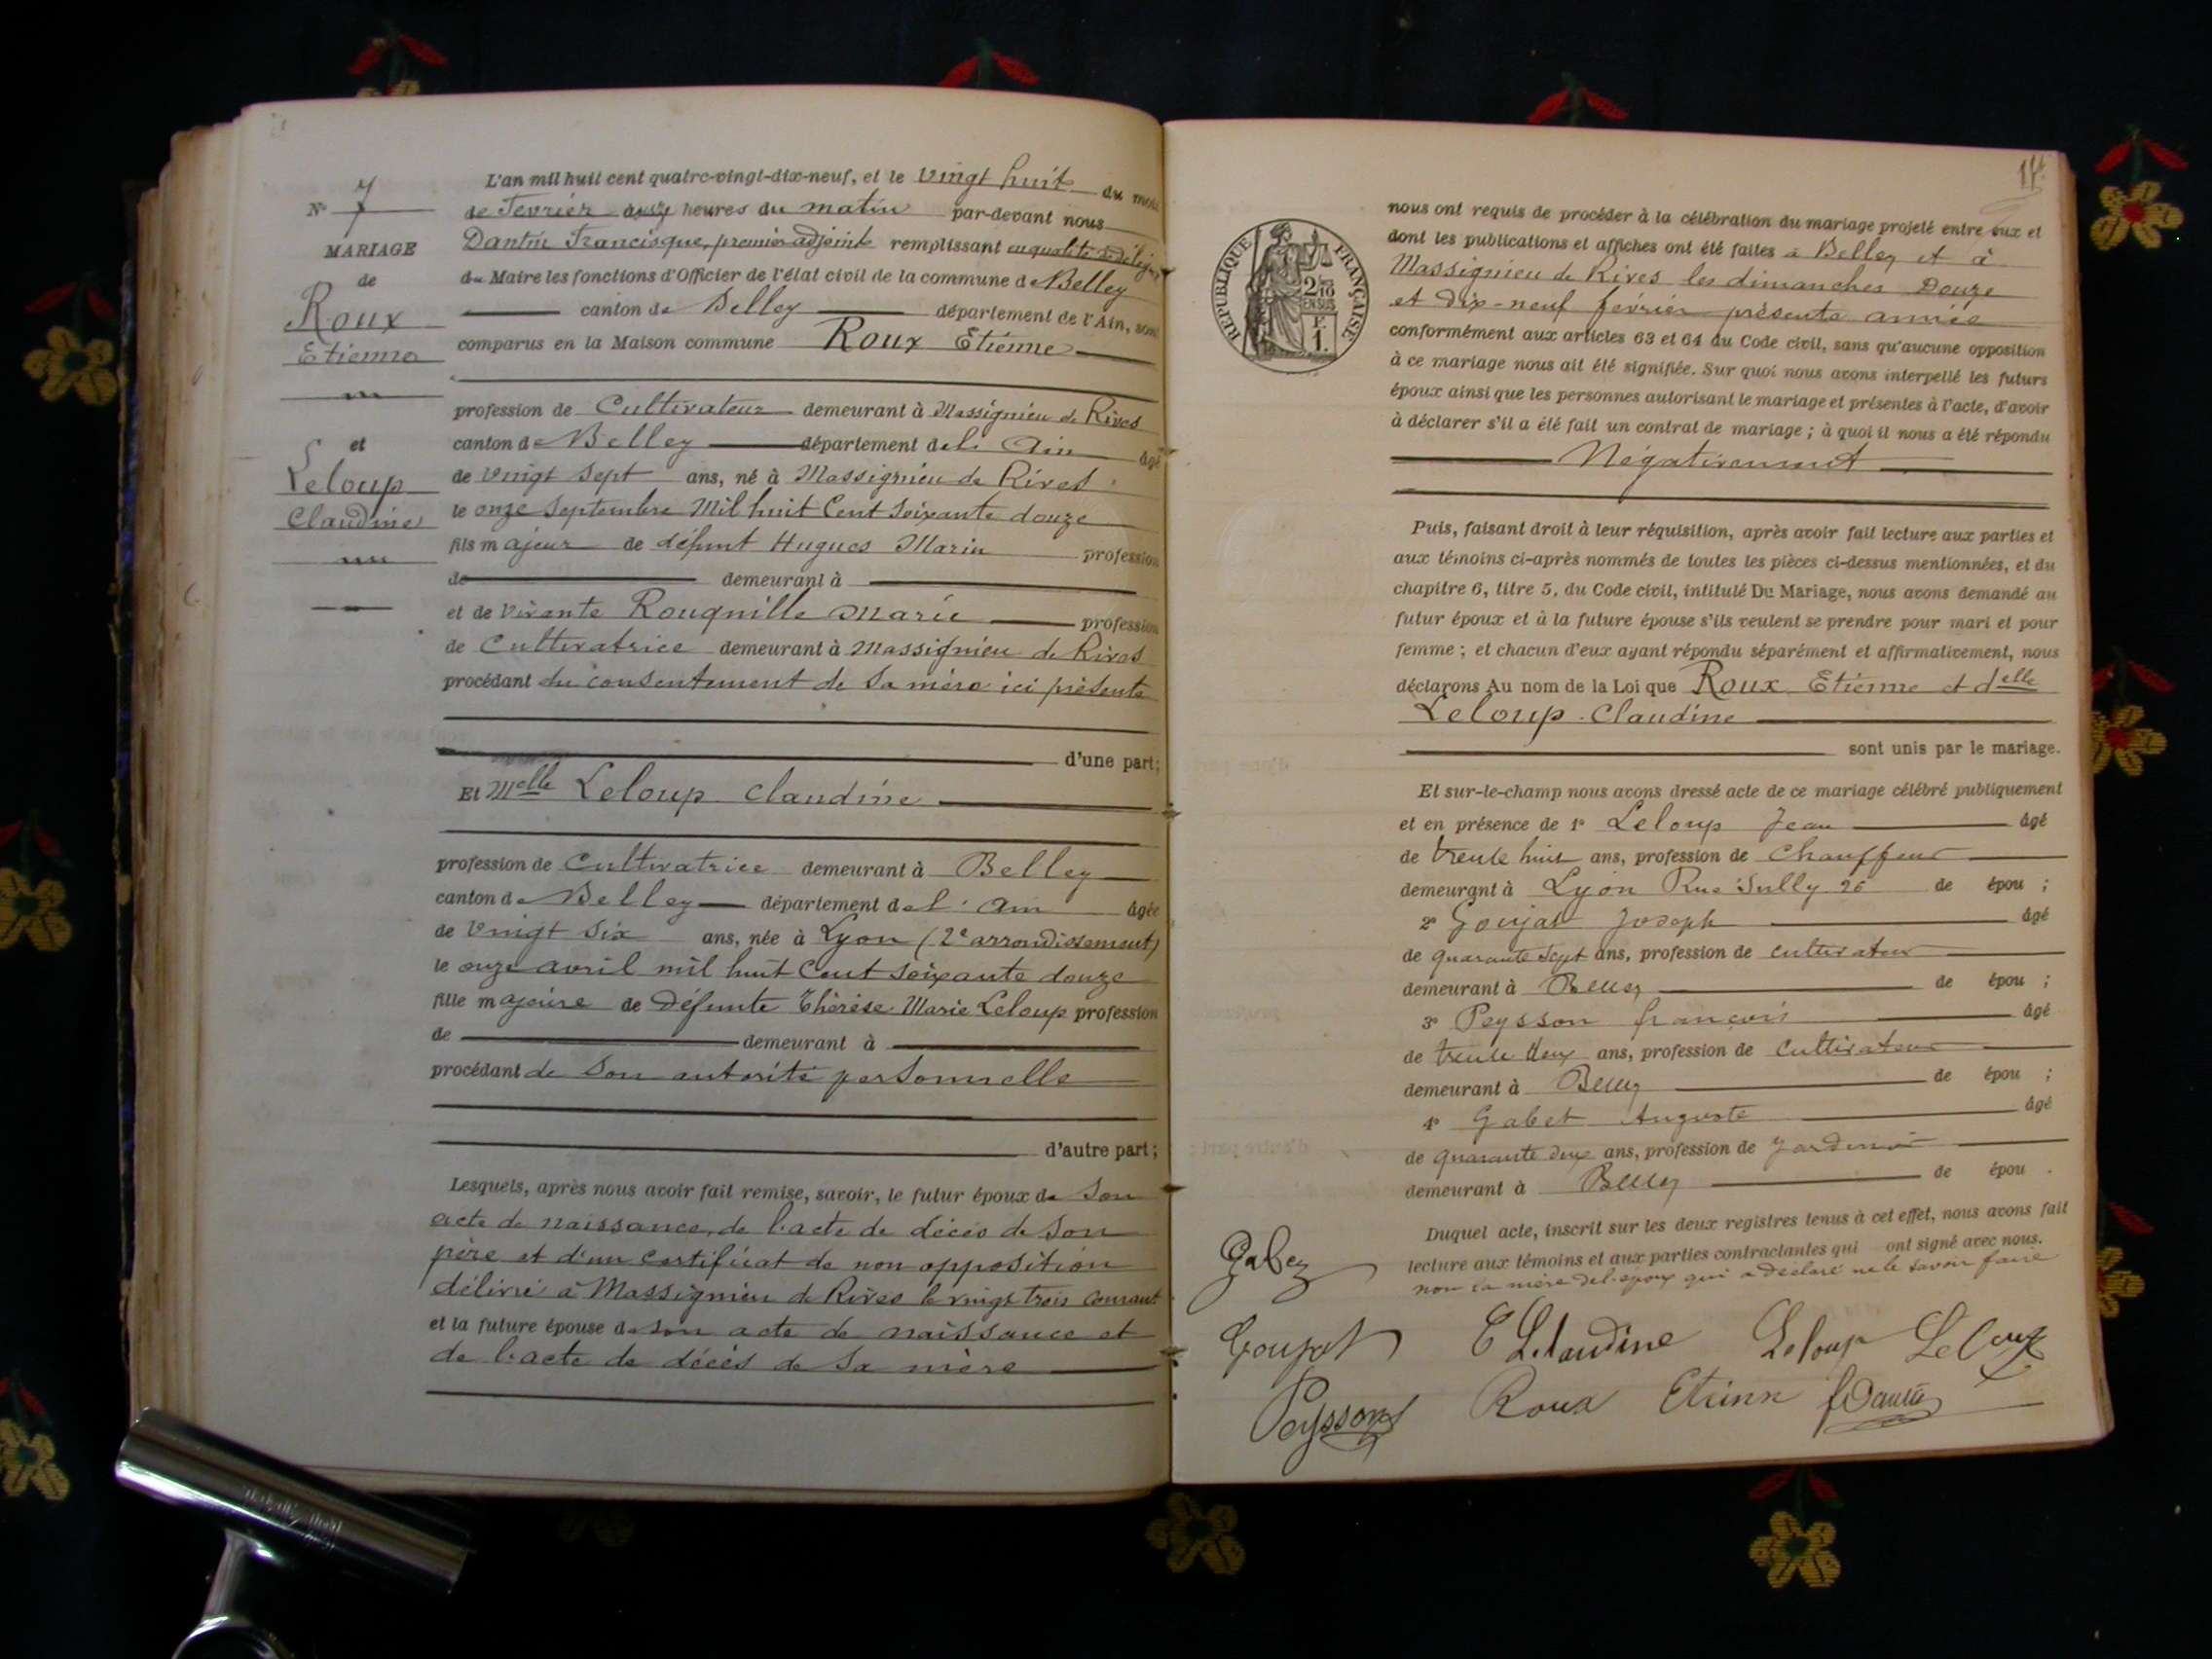 Nº 7
MARIAGE
de
Roux
Etienne
et
Leloup
Claudine
L'an mil huit cent quatre-vingt-dix-neuf, et le vingt huit du mois
de Fevrier onze heures du matin par-devant nous
Dantin Francisque, premier adjoint remplissant en qualité de délégué
du Maire les fonctions d'Officier de l'état civil de la commune de Belley
canton de Belley département de l'Ain, sont
comparus en la Maison commune Roux Etienne
profession de Cultivateur demeurant à Massignieu de Rives
canton de Belley département de l'Ain âgé
de vingt sept ans, né à Massignieu de Rives
le onze Septembre Mil huit Cent Soixante douze
fils majeur de défunt Hugues Marin profession
de demeurant à
et de vivante Rougnille Marie profession
de Cultivatrice demeurant à Massignieu de Rives
procédant du consentement de sa mère ici présente
d'une part;
Et Melle Leloup Claudine
profession de Cultivatrice demeurant à Belley
canton de Belley département de l'Ain âgée
de Vingt Six ans, née à Lyon (2e arrondissement)
le onze avril mil huit Cent soixante douze
fille majeure de Défunte Thérèse Marie Leloup profession
de demeurant à
procédant de son autorité personnelle
d'autre part;
Lesquels, après nous avoir fait remise, savoir, le futur époux de son
acte de naissance, de l'acte de décès de son
père et d'un certificat de non opposition
délivré à Massignieu de Rives le vingt trois courant
et la future épouse de son acte de naissance et
de l'acte de décès de sa mère
RÉPUBLIQUE FRANÇAISE
2/10
EN SUS
F.
1.
nous ont requis de procéder à la célébration du mariage projeté entre eux et
dont les publications et affiches ont été faites à Belley et à
Massignieu de Rives les dimanches Douze
et Dix-neuf février présente année
conformément aux articles 63 et 64 du Code civil, sans qu'aucune opposition
à ce mariage nous ait été signifiée. Sur quoi nous avons interpellé les futurs
époux ainsi que les personnes autorisant le mariage et présentes à l'acte, d'avoir
à déclarer s'il a été fait un contrat de mariage; à quoi il nous a été répondu
Négativement
Puis, faisant droit à leur réquisition, après avoir fait lecture aux parties et
aux témoins ci-après nommés de toutes les pièces ci-dessus mentionnées, et du
chapitre 6, titre 5, du Code civil, intitulé Du Mariage, nous avons demandé au
futur époux et à la future épouse s'ils veulent se prendre pour mari et pour
femme; et chacun d'eux ayant répondu séparément et affirmativement, nous
déclarons Au nom de la Loi que Roux Etienne et delle
Leloup Claudine
sont unis par le mariage.
Et sur-le-champ nous avons dressé acte de ce mariage célébré publiquement
et en présence de 1º Leloup Jean âgé
de trente huit ans, profession de Chauffeur
demeurant à Lyon Rue Sully 26 de épou ;
2º Goujat Joseph âgé
de quarante sept ans, profession de cultivateur
demeurant à Belley de épou ;
3º Peysson françois âgé
de trente deux ans, profession de Cultivateur
demeurant à Belley de épou ;
4º Gabet Auguste âgé
de quarante deux ans, profession de Jardinier
demeurant à Belley de épou .
Duquel acte, inscrit sur les deux registres tenus à cet effet, nous avons fait
lecture aux témoins et aux parties contractantes qui ont signé avec nous.
non la mère de l'époux qui a déclaré ne le savoir faire
Gabet
Goujat Claudine Leloup Leloup
Peysson Roux Etienne f Dantin